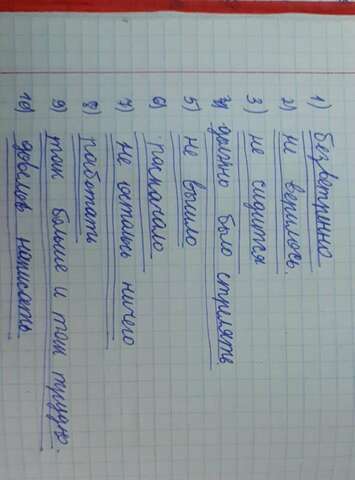 1) безветренно
2) не верилось.
3) не сидится
4) должно было стрелять
5) не вышло
6) раскачало
7) не осталось ничего
8) работать
9) тем больше и тем труднее.
10) довелось написать